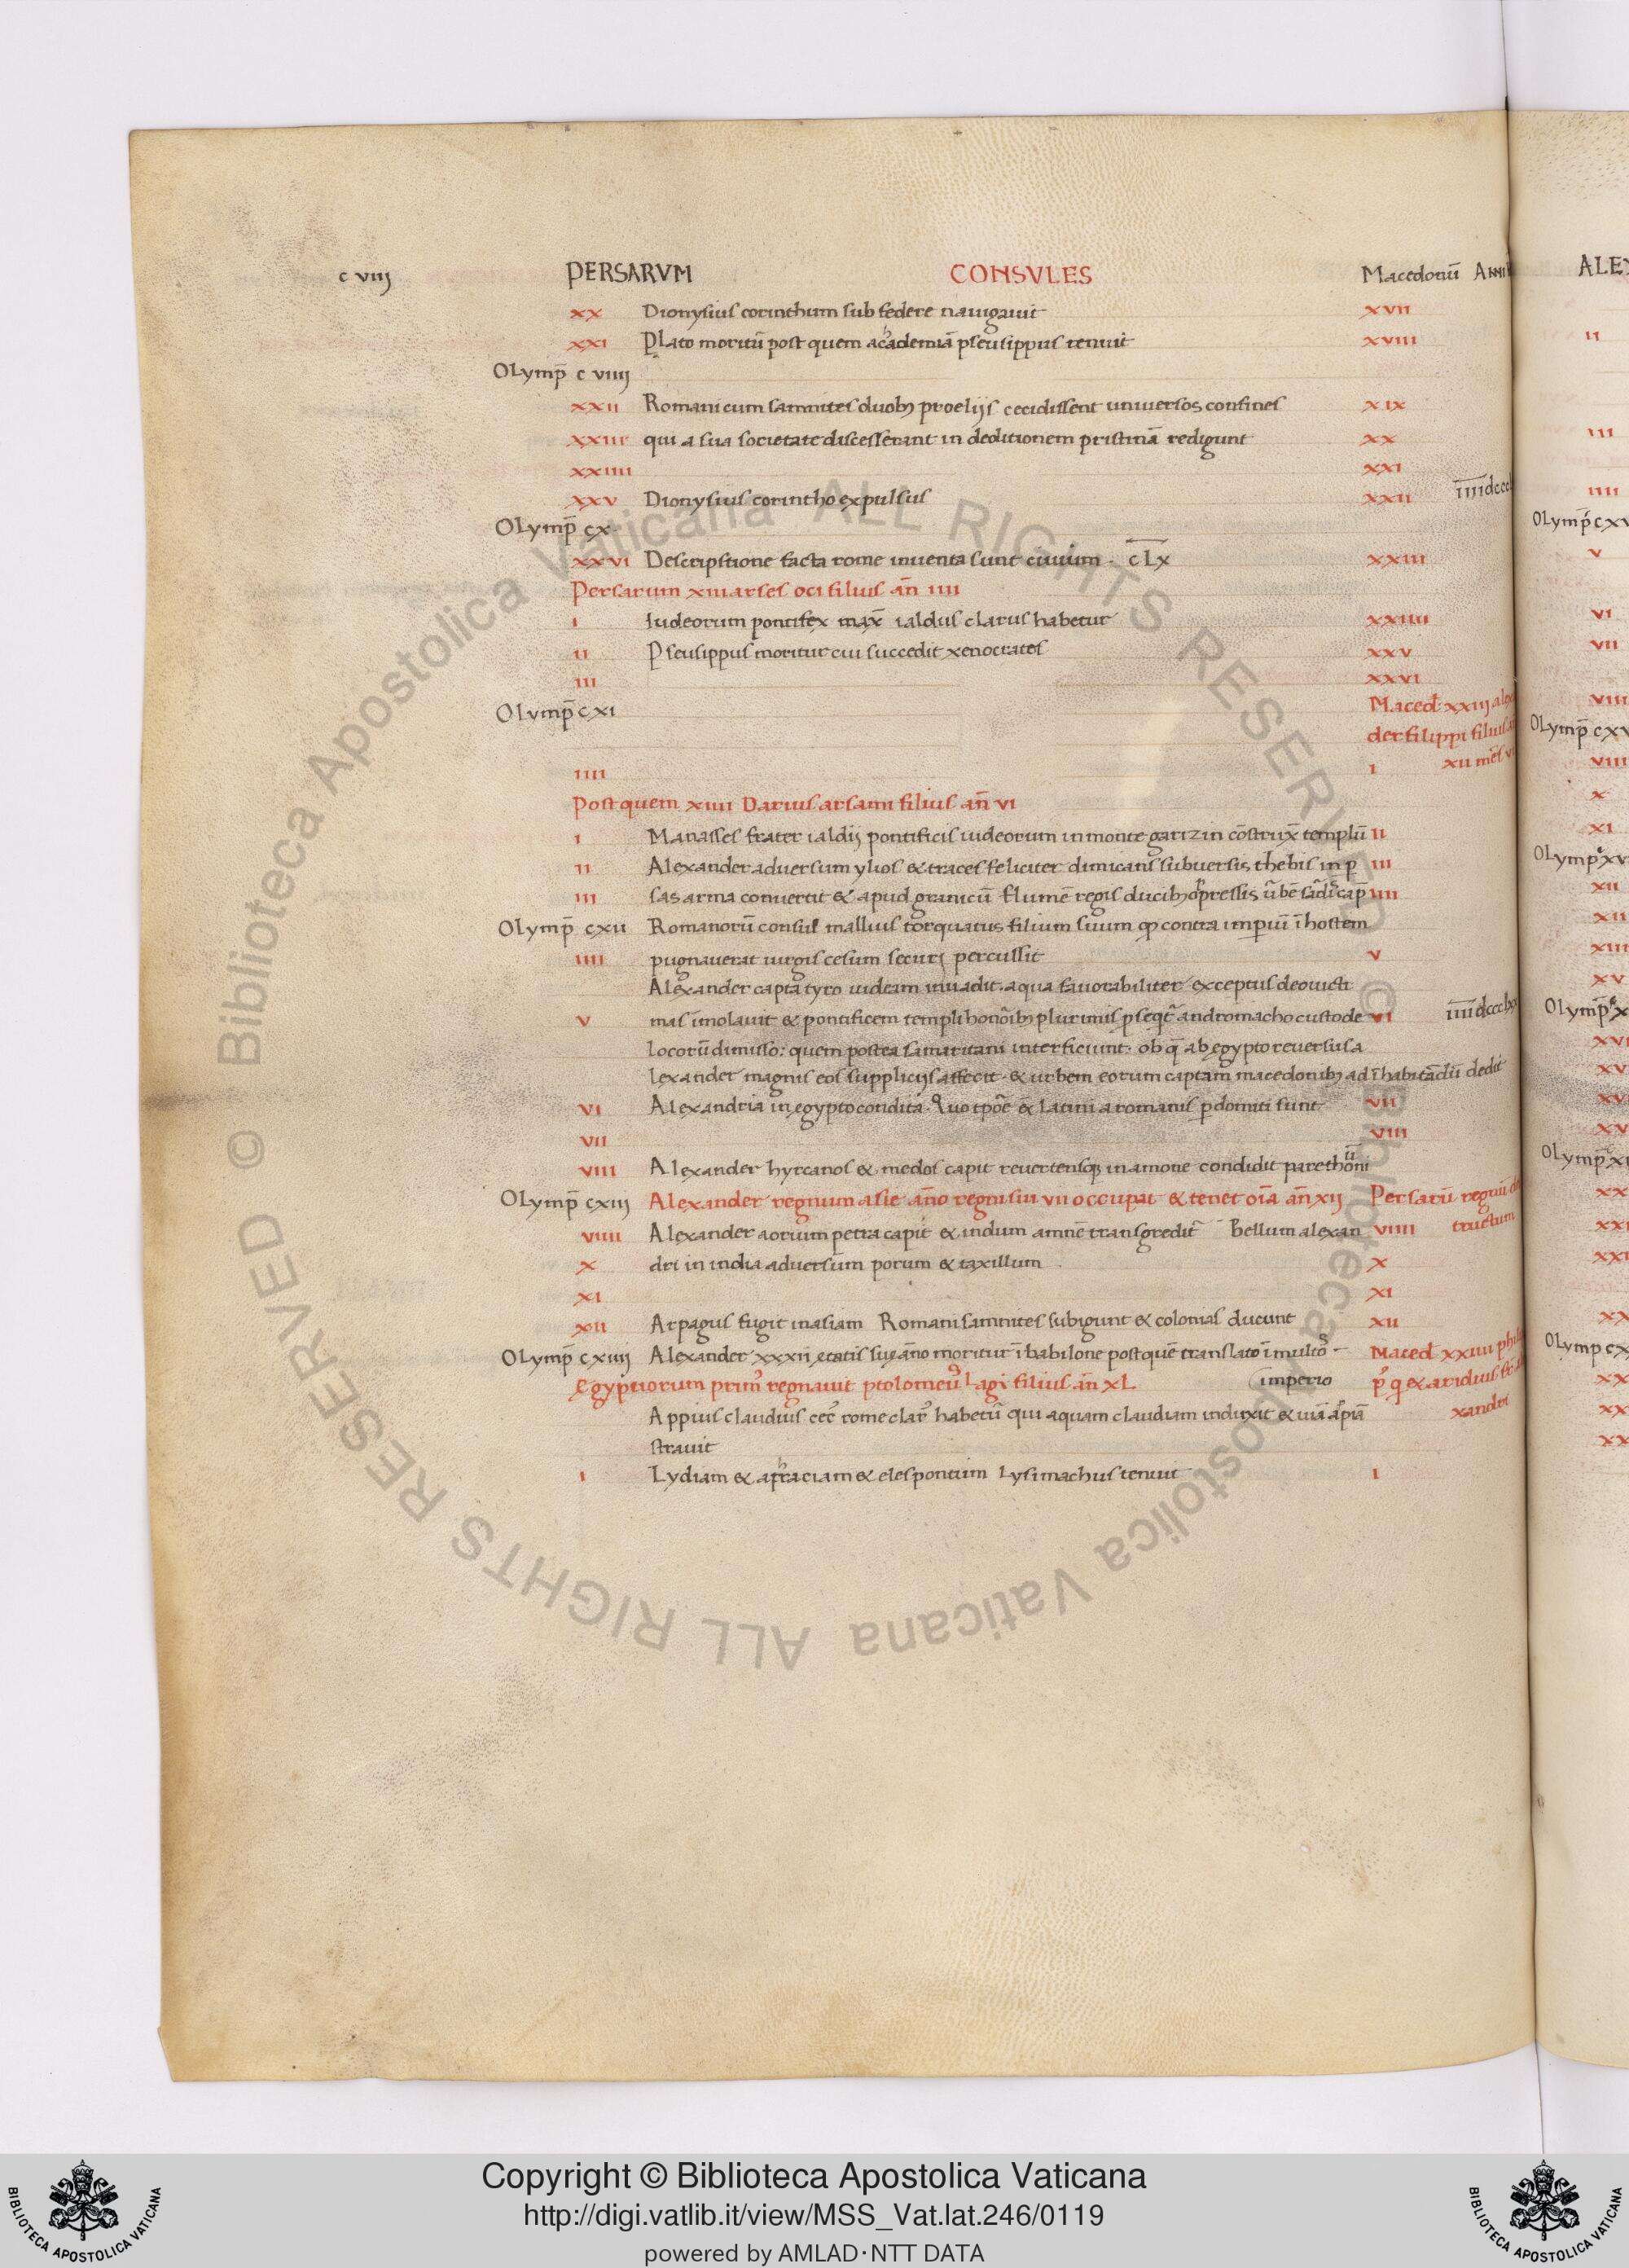 c viiij PERSARVM CONSVLES Macedonū ANNI
xx Dionysius corinthum sub federe nauigauit xvii
xxi Plato moritū post quem achademiā pseusippus tenuit xviii
OLymp̄ c viiij
xxii Romani cum samnites duob; proelijs cecidissent uniuersos confines xix
xxiii qui a sua societate discesserant in deditionem pristinā redigunt xx
xxiiii xxi
xxv Dionysius corintho expulsus xxii
OLymp̄ cx
xxvi Descripstione facta rome inuenta sunt ciuium · cLx xxiii
Persarum xiii arses oci filius an̄ iiii
i Iudeorum pontifex max̄ ialdus clarus habetur xxiiii
ii Pseusippus moritur cui succedit xenocrates xxv
iii xxvi
OLymp̄ cxi Maced̄ xxiij
der filippi filius
iiii i xii
Post quem xiiii Darius arsami filius an̄ vi
i Manasses frater ialdij pontificis iudeorum in monte garizin cōstrux̄ templū ii
ii Alexander aduersum ylios & traces feliciter dimicans subuersis thebis in p iii
iii sas arma conuertit & apud granicū flumē regis ducib; oppressis iiii
OLymp̄ cxii Romanorū consul mallius torquatus filium suum contra hostem
iiii pugnauerat uirgis cesum securi percussit v
Alexander capta tyro iudeam inuadit. a qua fauorabiliter exceptus deo uicti
v mas imolauit & pontificem templi plurimis andromacho custode vi
locorū dimisso: quem postea samaritani interficiunt. ob q̄ ab egypto reuersus a
lexander magnis eos supplicijs affecit · & urbem eorum captam macedonib; ad ihabitādū dedit
vi Alexandria in egypto condita. Quo & latini a romanis pdomiti sunt vii
vii viii
viii Alexander hyrcanos & medos capit reuertensq; in amone condidit
OLymp̄ cxiij Alexander regnum asie ano regni sui vii occupat & tenet oīa an̄ xij Persarū regnū
viiii Alexander aornum petra capit & indum amnē transgredit Bellum alexan viiii
x dri in india aduersum porum & taxillum x
xi xi
xii Arpagus fugit in asiam Romani samnites subigunt & colonias ducunt xii
OLymp̄ cxiiij Alexander xxxii etatis sue ano moritur ī babilone post quē translato ī multos Maced̄ xxiiii
Egyptiorum prim' regnauit ptolomeus Lagi filius an̄ xL imperio
Appius claudius cec' rome clar' habetū qui aquam claudiam induxit & uiā apiā
strauit
i Lydiam & thraciam & elespontum Lysimachus tenuit i
ALE
ii
iii
iiii
v
vi
vii
viii
viiii
x
xi
xii
Copyright © Biblioteca Apostolica Vaticana
http://digi.vatlib.it/view/MSS_Vat.lat.246/0119
powered by AMLAD·NTT DATA
BIBLIOTECA APOSTOLICA VATICANA
BIBLIOTECA APOSTOLICA VATICANA
© Biblioteca Apostolica Vaticana ALL RIGHTS RESERVED © Biblioteca Apostolica Vaticana ALL RIGHTS RESERVED